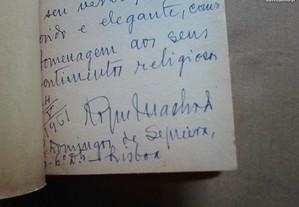 seu
e elegante, como
homenagem aos seus
sentimentos religiosos
1961
Roque Machado
Domingos de Sequeira,
Lisboa